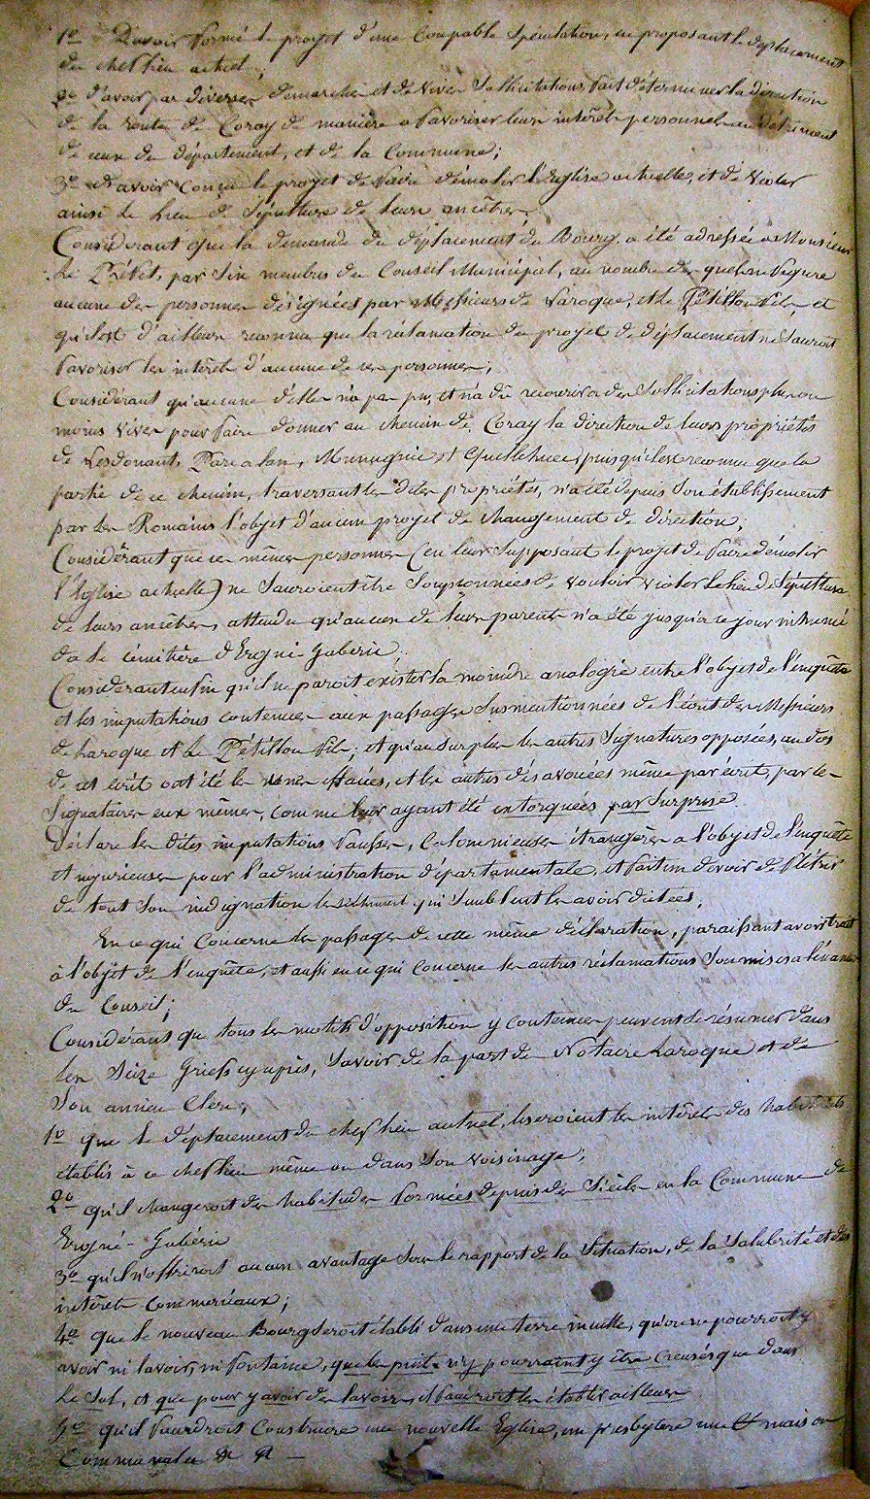 1o D'avoir formé le projet d'une Coupable Spéculation, en proposant le déplacement
du chef lieu actuel;
2o d'avoir par diverses demarches et de vives Sollicitations, fait déterminer la direction
de la route de Coray de manière a favoriser leurs intérêts personnels au détriment
de ceux du département, et de la Commune;
3o d'avoir conçu le projet de faire démolir l'Eglise actuelle, et de violer
ainsi le lieu de Sépulture de leurs ancêtres.
Considerant que la demande du déplacement du Bourg a été adressée a Monsieur
le Préfet, par Six membres du Conseil Municipal, au nombre desquels ne figure
aucune des personnes désignées par Messieurs de Laroque, et Le Pétillon fils, et
qu'il est d'ailleurs reconnu que la réclamation du projet de déplacement ne Sauroit
favoriser les intérêts d'aucune de ces personnes;
Considérant qu'aucune d'elles n'a pas pu, et n'a dû recourir a des Sollicitations plus ou
moins vives pour faire donner au chemin de Coray la direction de leurs propriétés
de Lesdonant, Parc a lan, Munuguic et Quillihuec, puis qu'il est reconnu que la
partie de ce chemin, traversant les dites propriétés, n'a été depuis Son établissement
par les Romains l'objet d'aucun projet de changement de direction;
Considérant que ces mêmes personnes (en leur Supposant le projet de faire démolir
l'Eglise actuelle) ne Sauroient être Soupçonnées de vouloir violer le lieu de Sépulture
de leurs ancêtres, attendu qu'aucun de leurs parents n'a été jusqu'a ce jour inhumé
da le cimitière d'Ergué-Gabéric;
Considerant enfin qu'il ne paroit exister la moindre analogie entre l'objet de l'enquête
et les imputations contenues aux passages Susmentionnées de l'écrit des Messieurs
de Laroque et Le Pétillon fils; et qu'au Surplus les autres Signatures opposées, au dos
de cet écrit ont été les unes effacées, et les autres désavouées même par écrit, par le-
Signataires eux mêmes, comme leur ayant été extorquées par Surprise.
Déclare les dites imputations fausses, Calomnieuses étrangères a l'objet de l'enquête
et injurieuses pour l'administration départementale, et fait un devoir de flétrir
de tout Son indignation les sentiment qui Semblent les avoir dictées;
En ce qui Concerne les passages de cette même déclaration, paraissant avoir trait
à l'objet de l'enquête, et aussi en ce qui Concerne les autres réclamations Soumises a l'éxamen
du Conseil;
Considérant que tous les motifs d'opposition y Contenues peuvent Se résumer dans
les Seize Griefs cy après, Savoir de la part du Notaire Laroque et de
Son ancien Clerc;
1o que le déplacement du chef lieu actuel, liseroient les intérêts des habitants
établis à ce chef lieu même ou dans Son voisinage;
2o qu'il changeroit des habitudes formées depuis des Siècles en la Commune de
Ergué-Gabéric
3o qu'il n'offriroit aucun avantage Sous le rapport de la Situation, de la Salubrité et des
intérêts commerciaux;
4o que le nouveau Bourg Seroit établi dans une terre inculte, qu'on ne pourroit y
avoir ni lavoir, ni fontaine, que les puits n'y pourraint y être Creusés que dans
le Sol, et que pour y avoir des lavoirs, il faudroit les établir ailleurs
5o qu'il faudroit Construire une nouvelle Eglise, un presbytere une et maison
Communale &c &c —